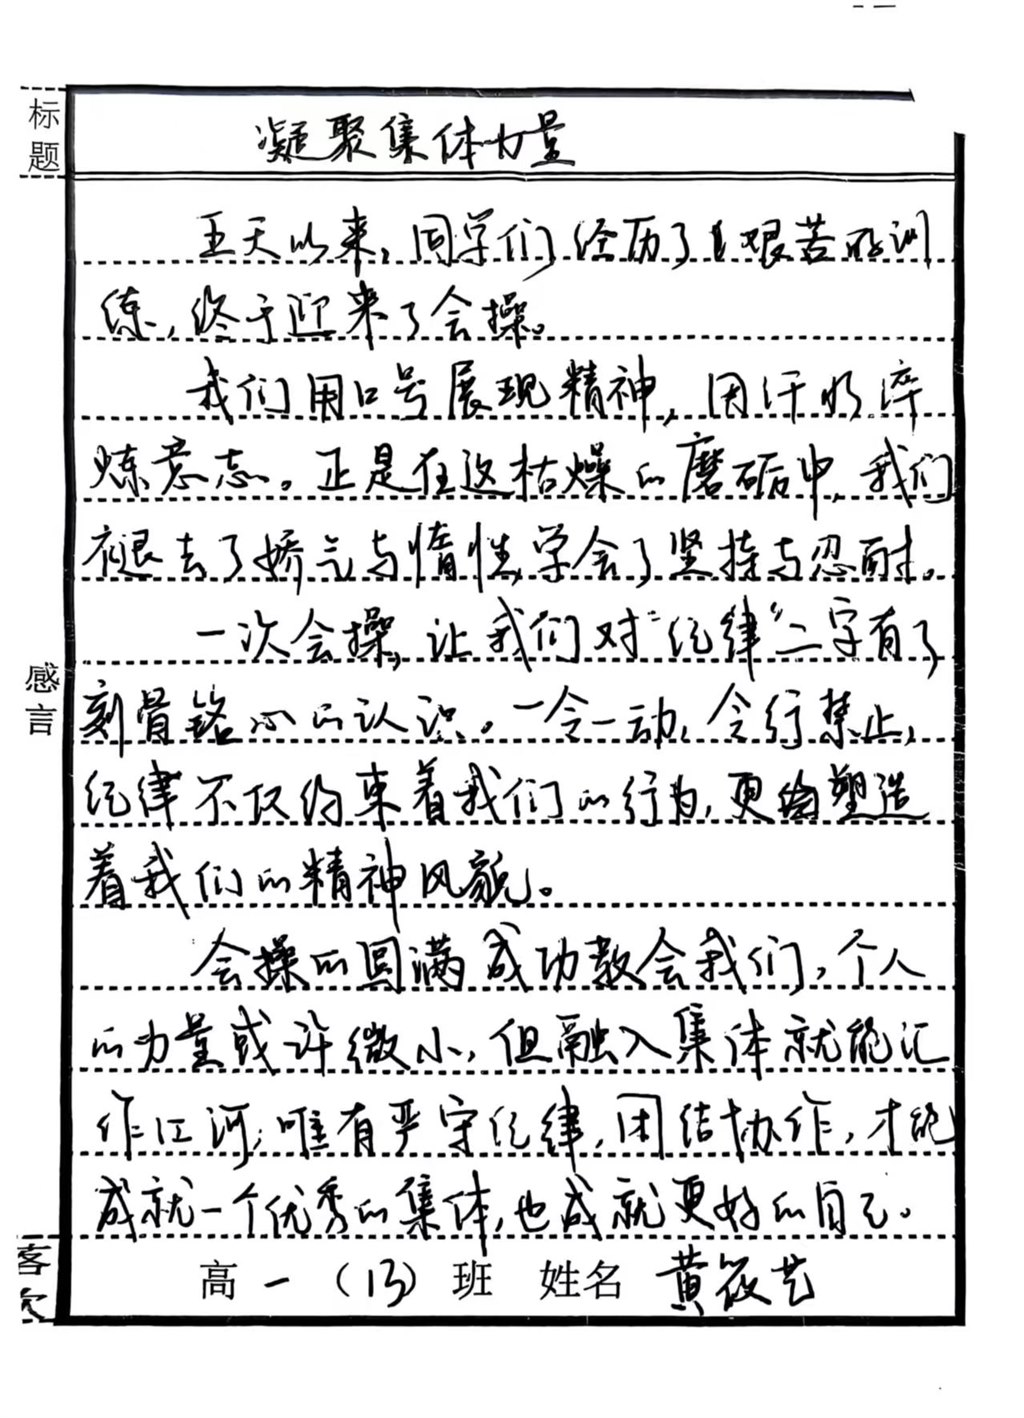 标题
凝聚集体力量
五天以来，同学们经历了艰苦的训
练，终于迎来了会操。
我们用口号展现精神，因汗水淬
炼意志。正是在这枯燥的磨砺中，我们
褪去了娇气与惰性，学会了坚持与忍耐。
一次会操，让我们对“纪律”二字有了
刻骨铭心的认识。一令一动，令行禁止，
纪律不仅约束着我们的行为，更塑造
着我们的精神风貌。
感言
会操的圆满成功教会我们，个人
的力量或许微小，但融入集体就能汇
作江河；唯有严守纪律，团结协作，才能
成就一个优秀的集体，也成就更好的自己。
高一（13）班 姓名 黄筱艺